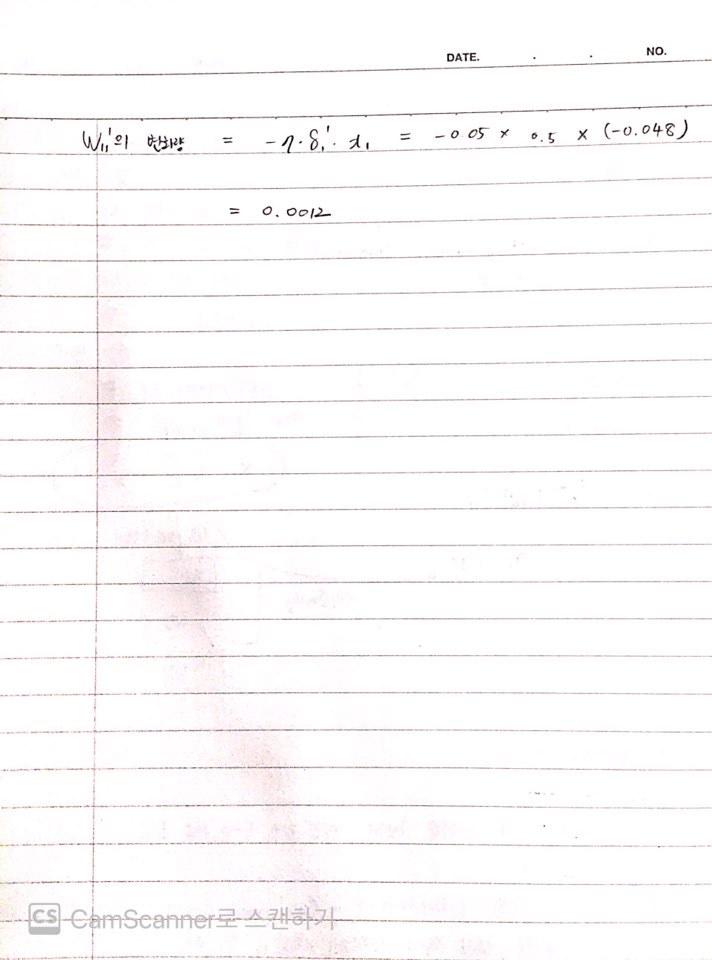 DATE. . . NO.
W₁₁¹의 변화량 = -η·δ₁¹·x₁ = -0.05 × 0.5 × (-0.048)
= 0.0012
CS CamScanner로 스캔하기